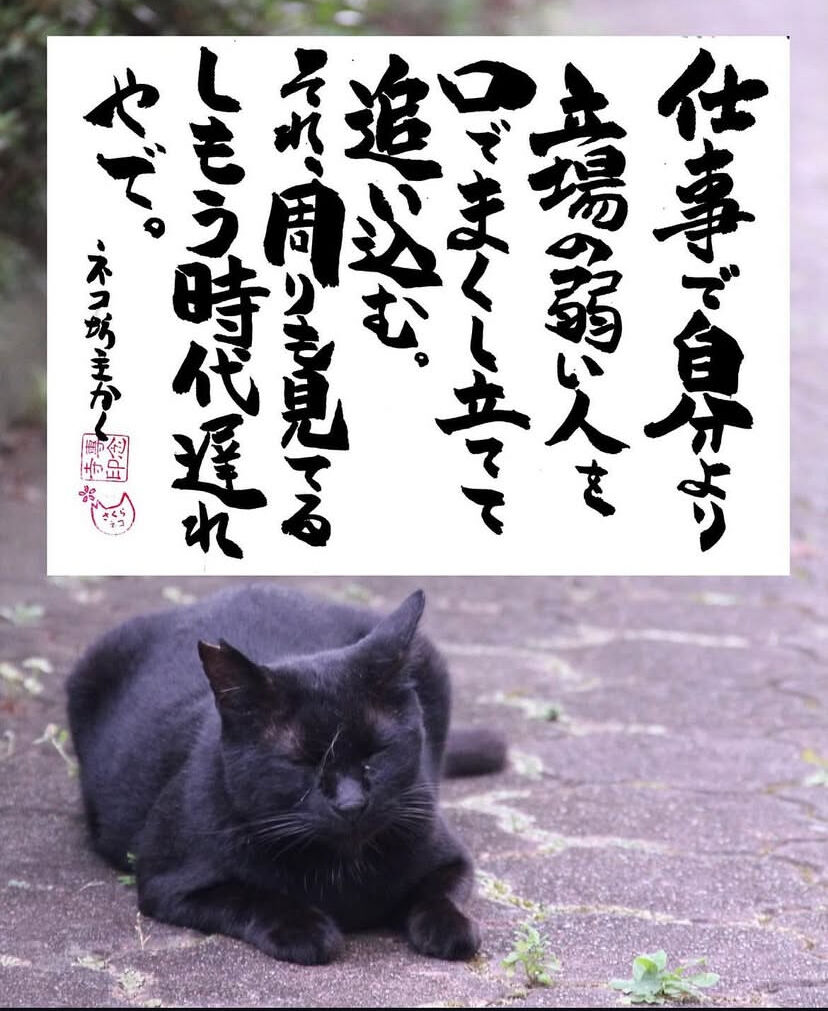 仕事で自分より
立場の弱い人を
口でまくし立てて
追い込む。
それ、周りも見てる
しもう時代遅れ
やで。
ネコ坊主かく
さくら
ネコ